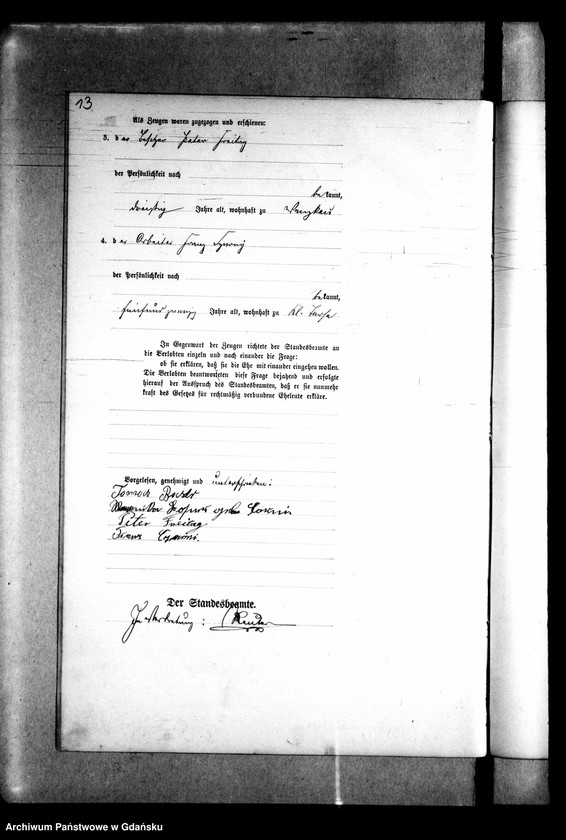 13
Als Zeugen waren zugezogen und erschienen:
3. der Besitzer Peter Freitag
der Persönlichkeit nach
bekannt,
dreißig Jahre alt, wohnhaft zu
4. der Arbeiter Franz
der Persönlichkeit nach
bekannt,
fünfundzwanzig Jahre alt, wohnhaft zu Kl.
In Gegenwart der Zeugen richtete der Standesbeamte an
die Verlobten einzeln und nach einander die Frage:
ob sie erklären, daß sie die Ehe mit einander eingehen wollen.
Die Verlobten beantworteten diese Frage bejahend und erfolgte
hierauf der Ausspruch des Standesbeamten, daß er sie nunmehr
kraft des Gesetzes für rechtmäßig verbundene Eheleute erkläre.
Vorgelesen, genehmigt und unterschrieben:
Peter Freitag
Franz
Der Standesbeamte.
In Vertretung: Reuter
Archiwum Państwowe w Gdańsku